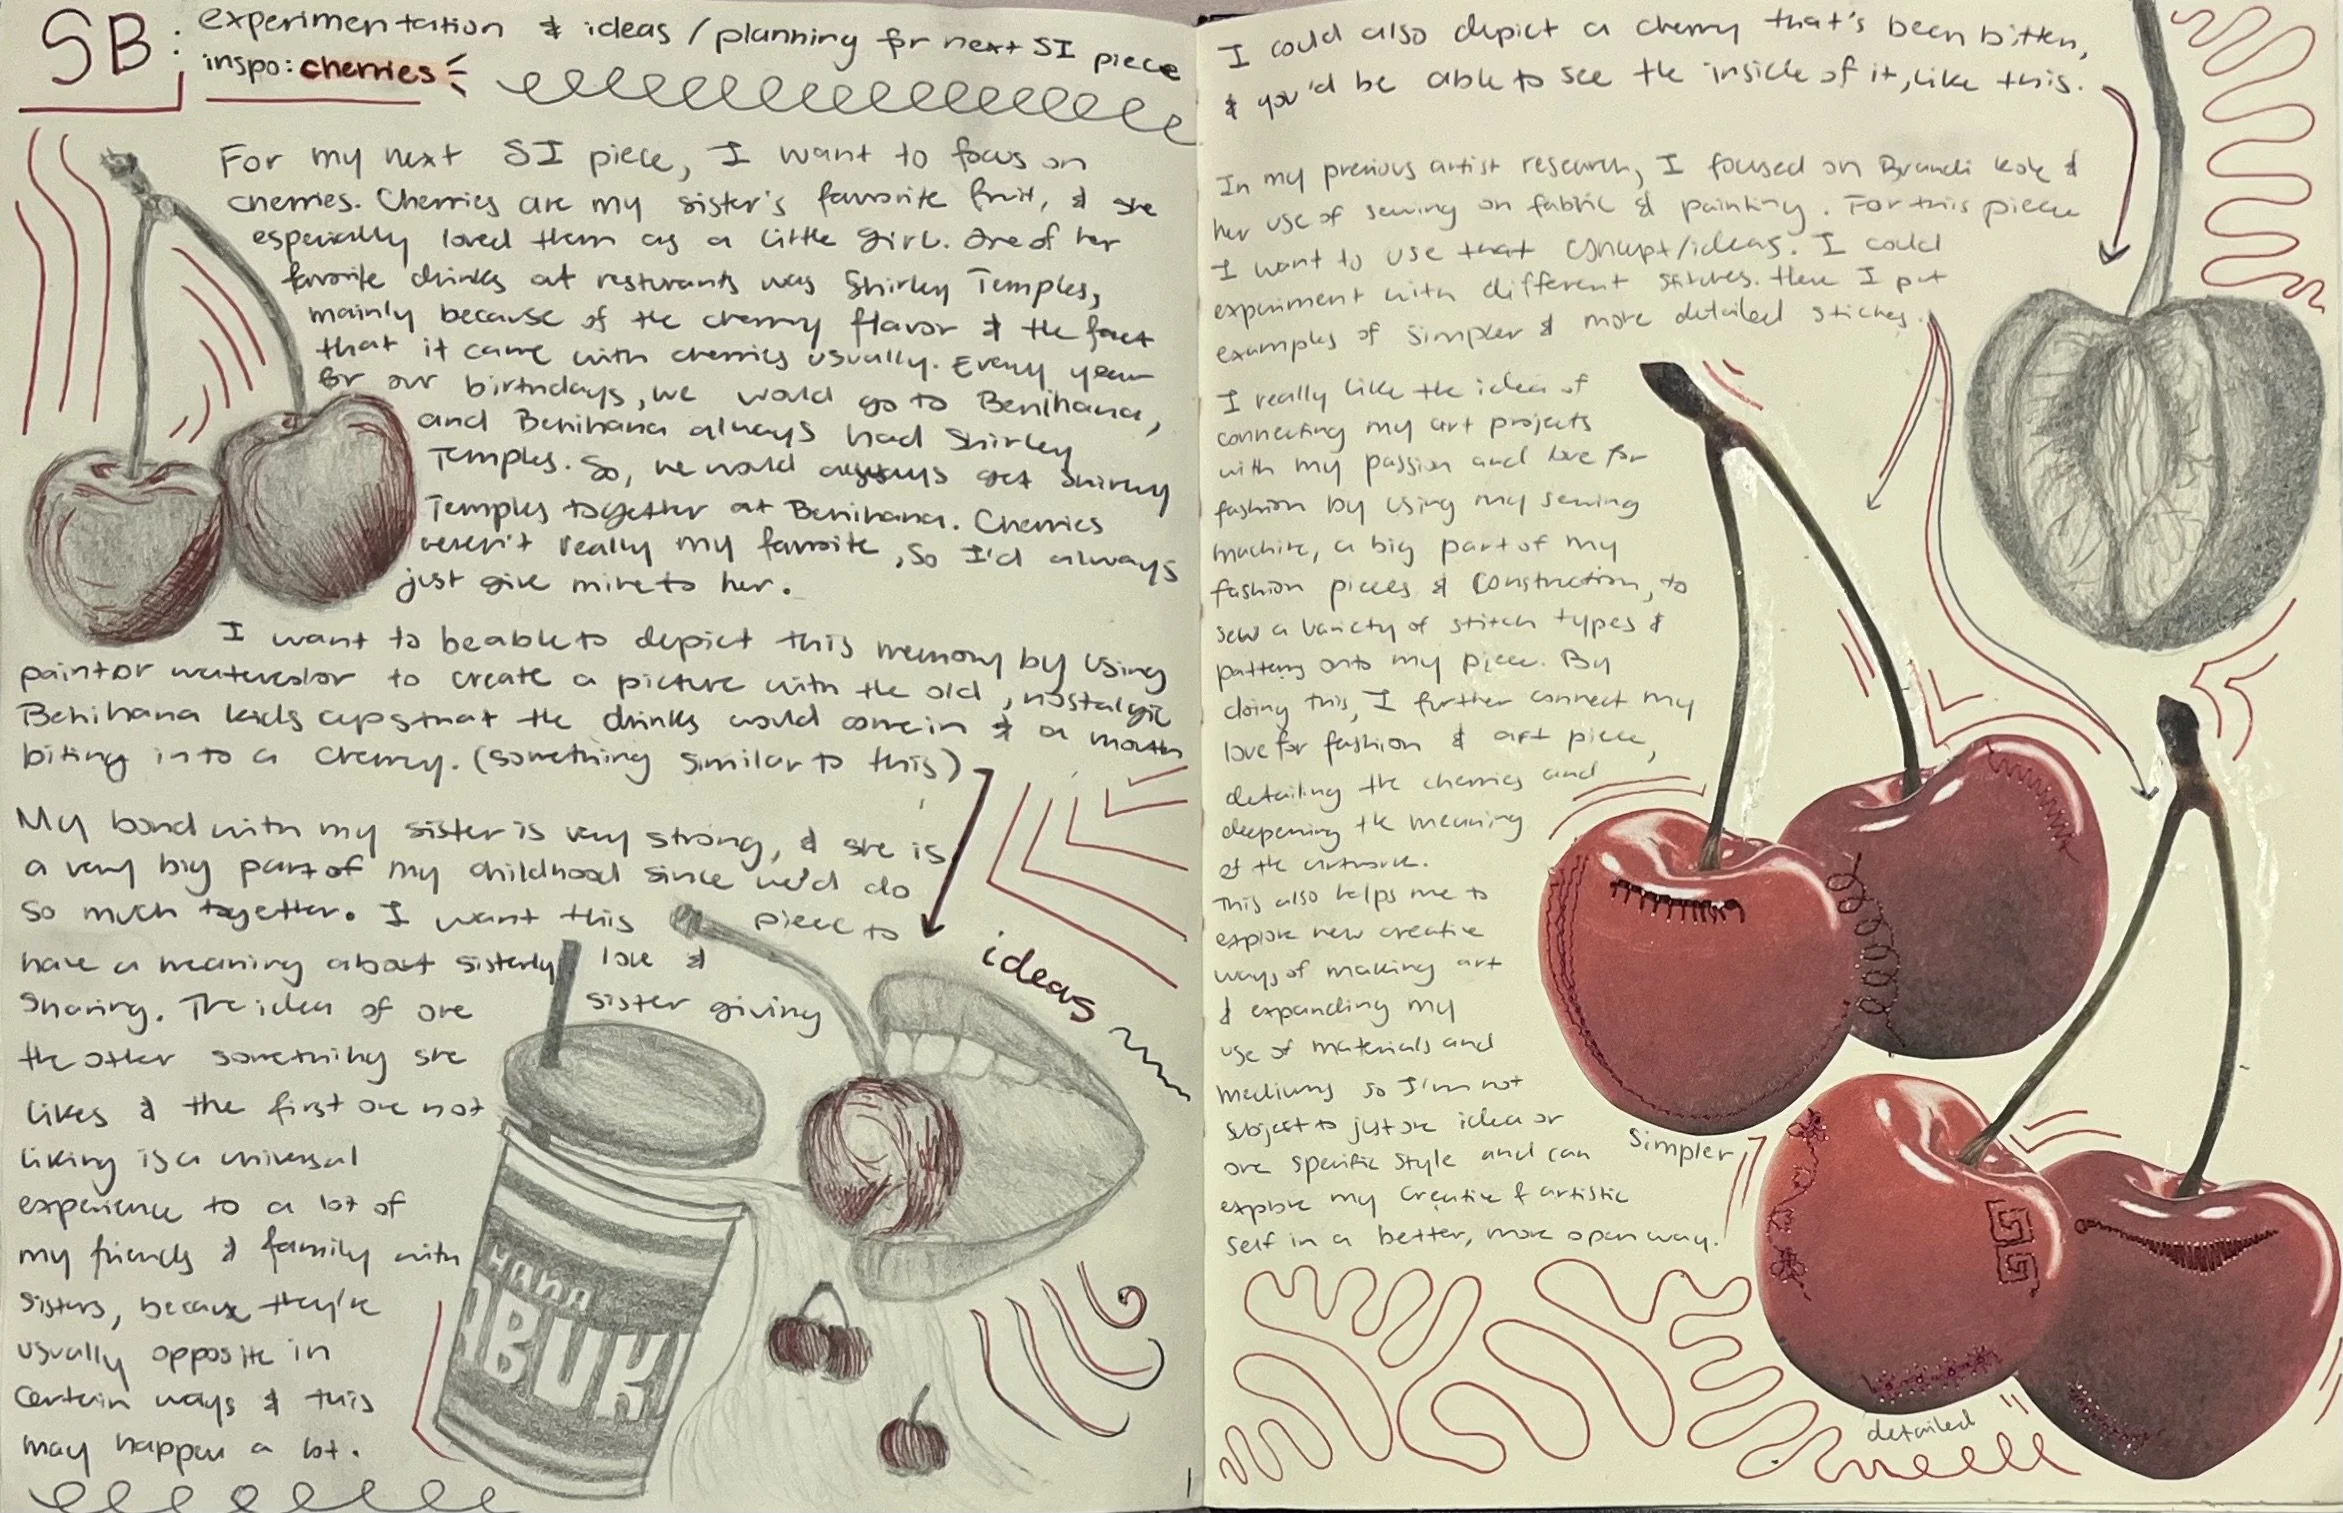 SB: experimentation & ideas / planning for next SI piece
inspo: cherries
For my next SI piece, I want to focus on
cherries. Cherries are my sister's favorite fruit, & she
especially loved them as a little girl. One of her
favorite drinks at resturants was Shirley Temples,
mainly because of the cherry flavor & the fact
that it came with cherries usually. Every year
for our birthdays, we would go to Benihana,
and Benihana always had Shirley
Temples. So, we would always get Shirley
Temples together at Benihana. Cherries
weren't really my favorite, so I'd always
just give mine to her.
I want to be able to depict this memory by using
paint or watercolor to create a picture with the old, nostalgic
Benihana kids cups that the drinks would come in & a mouth
biting into a cherry. (something similar to this)
My bond with my sister is very strong, & she is
a very big part of my childhood since we'd do
so much together. I want this piece to
have a meaning about sisterly love &
sharing. The idea of one sister giving
the other something she
likes & the first one not
liking is a universal
experience to a lot of
my friends & family with
sisters, because they're
usually opposite in
certain ways & this
may happen a lot.
ideas
HANA
ABUKI
I could also depict a cherry that's been bitten,
& you'd be able to see the inside of it, like this.
In my previous artist research, I focused on Brandi Kole &
her use of sewing on fabric & painting. For this piece
I want to use that concept/ideas. I could
experiment with different stitches. Here I put
examples of simpler & more detailed stiches.
I really like the idea of
connecting my art projects
with my passion and love for
fashion by using my sewing
machine, a big part of my
fashion pieces & construction, to
sew a variety of stitch types &
patterns onto my piece. By
doing this, I further connect my
love for fashion & art piece,
detailing the cherries and
deepening the meaning
of the artwork.
This also helps me to
explore new creative
ways of making art
& expanding my
use of materials and
mediums so I'm not
subject to just one idea or
one specific style and can
explore my creative & artistic
self in a better, more open way.
simpler
detailed